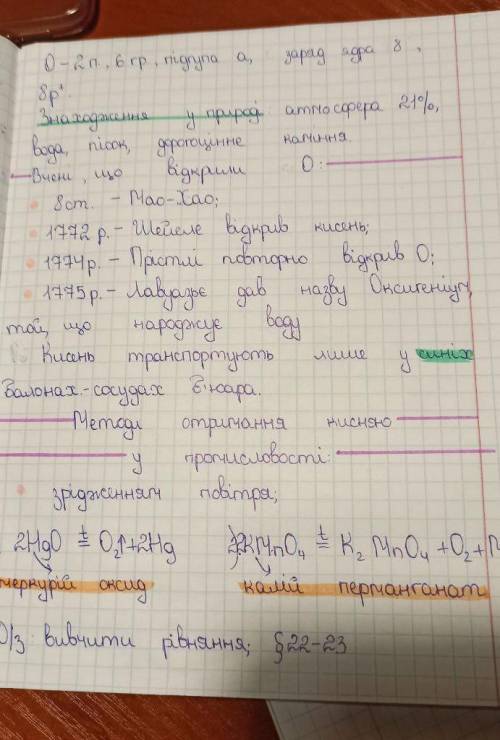 О – 2 п., 6 гр., підгупа а, заряд ядра 8,
8p⁺
Знаходження у природі атмосфера 21%,
вода, пісок, дорогоцінне каміння.
Вчені, що відкрили О:
8 ст. – Мао-Хао;
1772 р. – Шеєле відкрив кисень;
1774 р. – Прістлі повторно відкрив О;
1775 р. – Лавуазьє дав назву Оксигеніум,
той, що народжує воду
Кисень транспортують лише у синіх
балонах-сосудах Д'юара.
Методи отримання кисню
у промисловості:
зрідженням повітря;
2HgO t= O₂↑+2Hg 2KMnO₄ t= K₂MnO₄ + O₂ + M
меркурій оксид калій перманганат
D/з: вивчити рівняння; §22-23